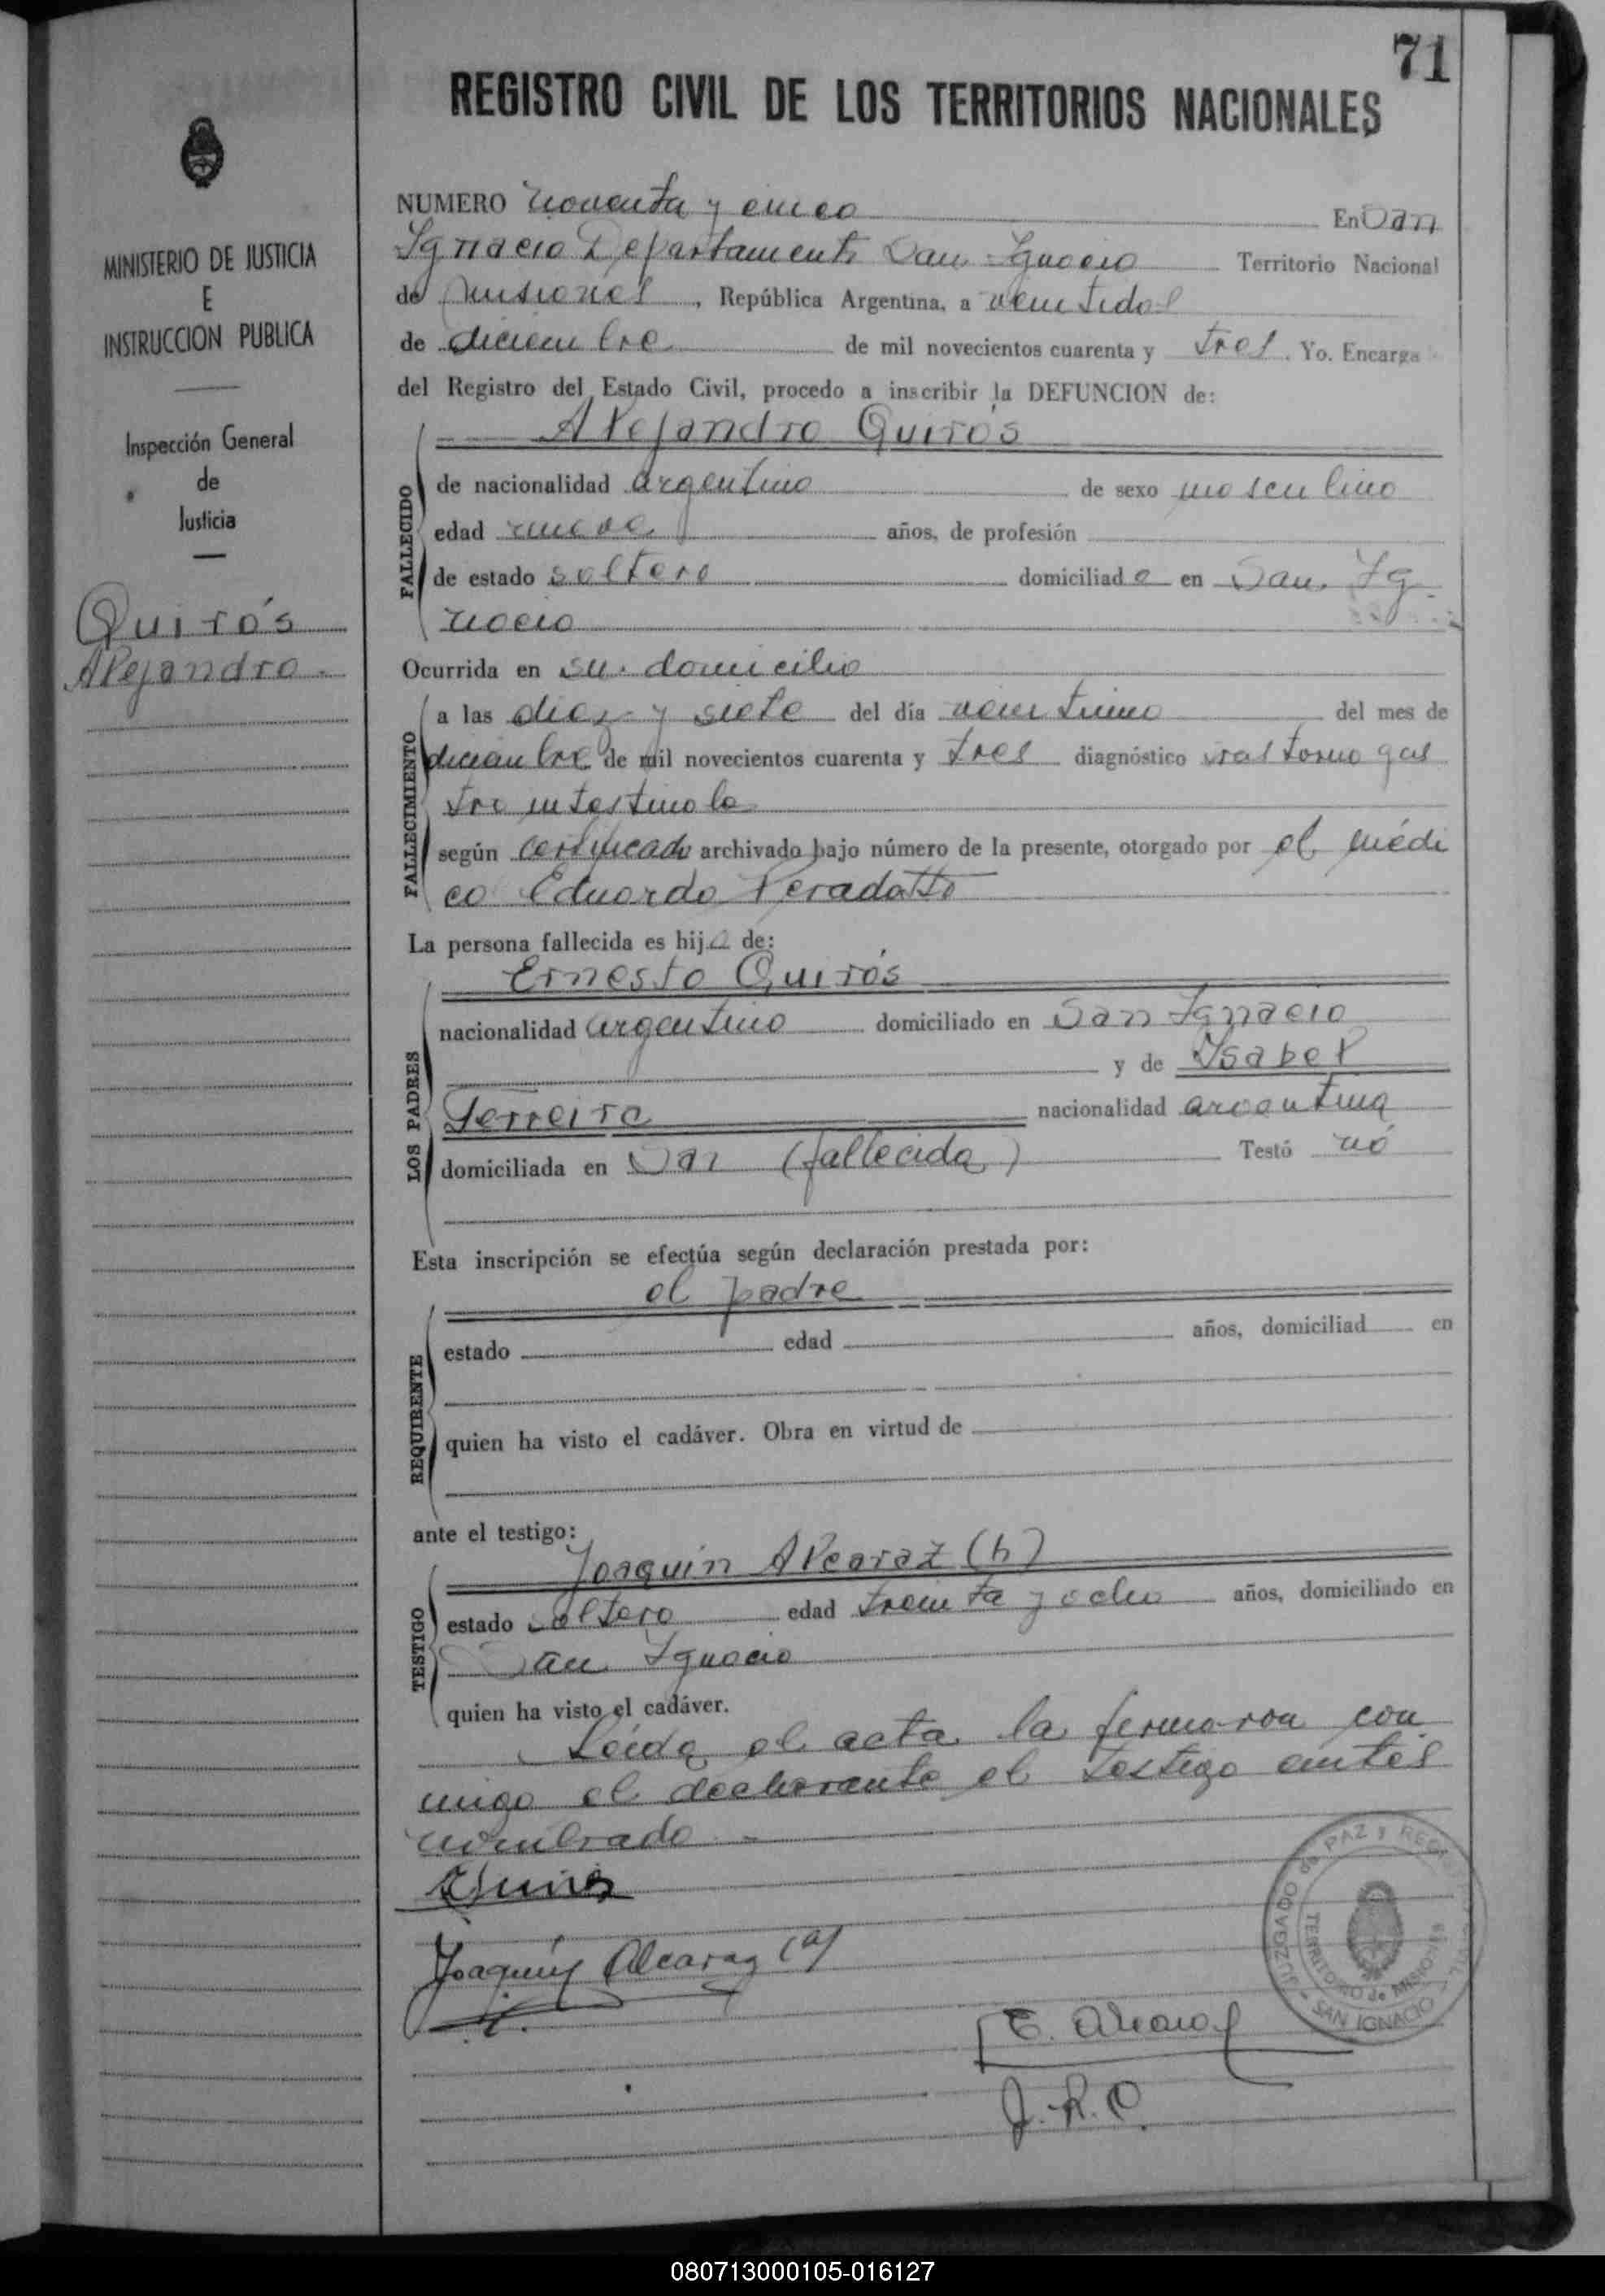 71
REGISTRO CIVIL DE LOS TERRITORIOS NACIONALES
MINISTERIO DE JUSTICIA
E
INSTRUCCION PUBLICA
Inspección General
de
Justicia
Quirós
Alejandro.
NUMERO noventa y cinco En San
Ignacio Departamento San Ignacio Territorio Nacional
de Misiones, República Argentina, a veintidos
de diciembre de mil novecientos cuarenta y tres. Yo. Encarga
del Registro del Estado Civil, procedo a inscribir la DEFUNCION de:
Alejandro Quirós
FALLECIDO
de nacionalidad argentino de sexo masculino
edad nueve años, de profesión
de estado soltero domiciliado en San Ig
nacio
Ocurrida en su domicilio
FALLECIMIENTO
a las diez y siete del día veintiuno del mes de
diciembre de mil novecientos cuarenta y tres diagnóstico trastorno gas
tro intestinale
según certificado archivado bajo número de la presente, otorgado por el médi
co Eduardo Peradotto
La persona fallecida es hijo de:
Ernesto Quirós
LOS PADRES
nacionalidad argentino domiciliado en San Ignacio
y de Ysabel
Ferreira nacionalidad argentina
domiciliada en San (fallecida) Testó nó
Esta inscripción se efectúa según declaración prestada por:
el padre
REQUIRENTE
estado edad años, domiciliad en
quien ha visto el cadáver. Obra en virtud de
ante el testigo:
Joaquin Alcaraz (h)
TESTIGO
estado soltero edad treinta y ocho años, domiciliado en
San Ignacio
quien ha visto el cadáver.
Leída el acta la firmaron con
migo el declarante el testigo antes
nombrado
Joaquin Alcaraz (h)
JUZGADO de PAZ y REGISTRO CIVIL
TERRITORIO de MISIONES
- SAN IGNACIO -
E. Alvarez
J.R.C.
080713000105-016127